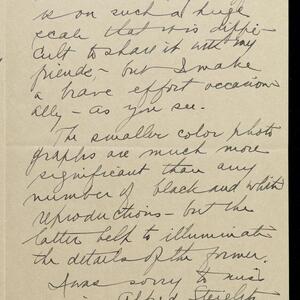 is on such a huge
scale that it is diffi-
cult to share it with my
friends, - but I make
a brave effort occasion-
ally - as you see.
The smaller color photo
graphs are much more
significant than any
number of black and white
reproductions - but the
latter help to illuminate
the details of the former.
I was sorry to miss
Alfred Stieglitz